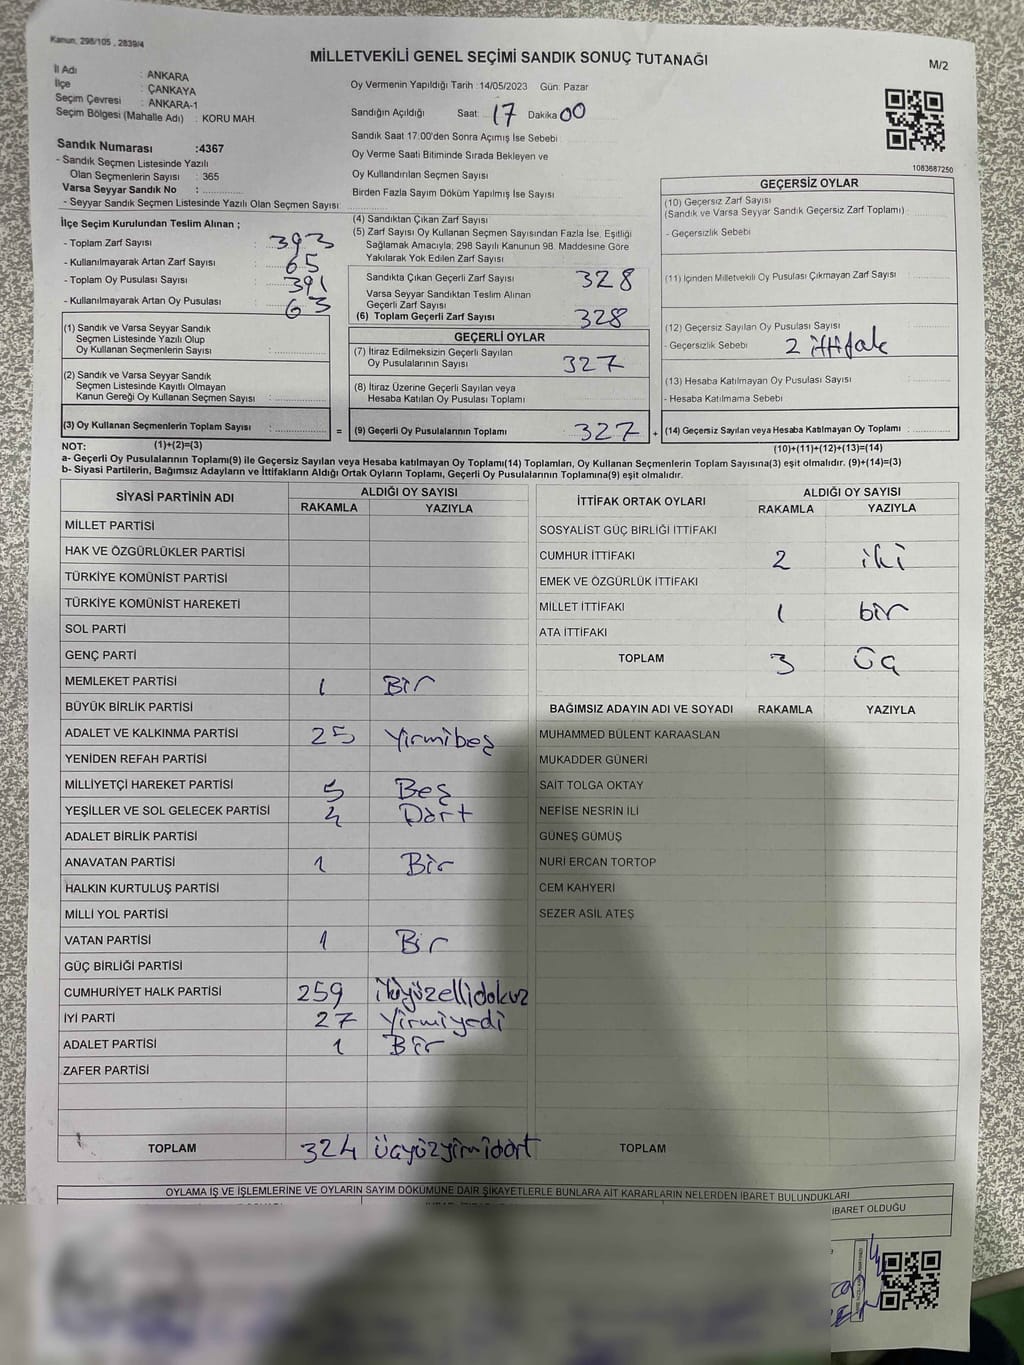 Kanun, 298/105 , 2839/4
MİLLETVEKİLİ GENEL SEÇİMİ SANDIK SONUÇ TUTANAĞI
M/2
İl Adı : ANKARA
İlçe : ÇANKAYA
Seçim Çevresi : ANKARA-1
Seçim Bölgesi (Mahalle Adı) : KORU MAH
Oy Vermenin Yapıldığı Tarih :14/05/2023 Gün: Pazar
Sandığın Açıldığı Saat: 17 Dakika 00
Sandık Saat 17:00'den Sonra Açımış İse Sebebi
Oy Verme Saati Bitiminde Sırada Bekleyen ve
Oy Kullandırılan Seçmen Sayısı
Birden Fazla Sayım Döküm Yapılmış İse Sayısı
1083687250
Sandık Numarası :4367
- Sandık Seçmen Listesinde Yazılı
Olan Seçmenlerin Sayısı : 365
Varsa Seyyar Sandık No : ..............
- Seyyar Sandık Seçmen Listesinde Yazılı Olan Seçmen Sayısı:
İlçe Seçim Kurulundan Teslim Alınan ;
- Toplam Zarf Sayısı : 393
- Kullanılmayarak Artan Zarf Sayısı : 65
- Toplam Oy Pusulası Sayısı : 391
- Kullanılmayarak Artan Oy Pusulası : 63
(1) Sandık ve Varsa Seyyar Sandık
Seçmen Listesinde Yazılı Olup
Oy Kullanan Seçmenlerin Sayısı : ..............
(2) Sandık ve Varsa Seyyar Sandık
Seçmen Listesinde Kayıtlı Olmayan
Kanun Gereği Oy Kullanan Seçmen Sayısı : ..............
(3) Oy Kullanan Seçmenlerin Toplam Sayısı : ..............
(4) Sandıktan Çıkan Zarf Sayısı
(5) Zarf Sayısı Oy Kullanan Seçmen Sayısından Fazla İse, Eşitliği
Sağlamak Amacıyla; 298 Sayılı Kanunun 98. Maddesine Göre
Yakılarak Yok Edilen Zarf Sayısı
Sandıkta Çıkan Geçerli Zarf Sayısı 328
Varsa Seyyar Sandıktan Teslim Alınan
Geçerli Zarf Sayısı
(6) Toplam Geçerli Zarf Sayısı 328
GEÇERLİ OYLAR
(7) İtiraz Edilmeksizin Geçerli Sayılan
Oy Pusulalarının Sayısı 327
(8) İtiraz Üzerine Geçerli Sayılan veya
Hesaba Katılan Oy Pusulası Toplamı
= (9) Geçerli Oy Pusulalarının Toplamı 327 +
GEÇERSİZ OYLAR
(10) Geçersiz Zarf Sayısı
(Sandık ve Varsa Seyyar Sandık Geçersiz Zarf Toplamı)
- Geçersizlik Sebebi
(11) İçinden Milletvekili Oy Pusulası Çıkmayan Zarf Sayısı
(12) Geçersiz Sayılan Oy Pusulası Sayısı
- Geçersizlik Sebebi 2 ittifak
(13) Hesaba Katılmayan Oy Pusulası Sayısı
- Hesaba Katılmama Sebebi
(14) Geçersiz Sayılan veya Hesaba Katılmayan Oy Toplamı :
NOT: (1)+(2)=(3) (10)+(11)+(12)+(13)=(14)
a- Geçerli Oy Pusulalarının Toplamı(9) ile Geçersiz Sayılan veya Hesaba katılmayan Oy Toplamı(14) Toplamları, Oy Kullanan Seçmenlerin Toplam Sayısına(3) eşit olmalıdır. (9)+(14)=(3)
b- Siyasi Partilerin, Bağımsız Adayların ve İttifakların Aldığı Ortak Oyların Toplamı, Geçerli Oy Pusulalarının Toplamına(9) eşit olmalıdır.
SİYASİ PARTİNİN ADI ALDIĞI OY SAYISI
RAKAMLA YAZIYLA
MİLLET PARTİSİ
HAK VE ÖZGÜRLÜKLER PARTİSİ
TÜRKİYE KOMÜNİST PARTİSİ
TÜRKİYE KOMÜNİST HAREKETİ
SOL PARTİ
GENÇ PARTİ
MEMLEKET PARTİSİ 1 Bir
BÜYÜK BİRLİK PARTİSİ
ADALET VE KALKINMA PARTİSİ 25 Yirmibeş
YENİDEN REFAH PARTİSİ
MİLLİYETÇİ HAREKET PARTİSİ 5 Beş
YEŞİLLER VE SOL GELECEK PARTİSİ 4 Dört
ADALET BİRLİK PARTİSİ
ANAVATAN PARTİSİ 1 Bir
HALKIN KURTULUŞ PARTİSİ
MİLLİ YOL PARTİSİ
VATAN PARTİSİ 1 Bir
GÜÇ BİRLİĞİ PARTİSİ
CUMHURİYET HALK PARTİSİ 259 ikiyüzellidokuz
İYİ PARTİ 27 Yirmiyedi
ADALET PARTİSİ 1 Bir
ZAFER PARTİSİ
TOPLAM 324 üçyüzyirmidört
İTTİFAK ORTAK OYLARI ALDIĞI OY SAYISI
RAKAMLA YAZIYLA
SOSYALİST GÜÇ BİRLİĞİ İTTİFAKI
CUMHUR İTTİFAKI 2 iki
EMEK VE ÖZGÜRLÜK İTTİFAKI
MİLLET İTTİFAKI 1 bir
ATA İTTİFAKI
TOPLAM 3 Üç
BAĞIMSIZ ADAYIN ADI VE SOYADI RAKAMLA YAZIYLA
MUHAMMED BÜLENT KARAASLAN
MUKADDER GÜNERİ
SAİT TOLGA OKTAY
NEFİSE NESRİN İLİ
GÜNEŞ GÜMÜŞ
NURİ ERCAN TORTOP
CEM KAHYERİ
SEZER ASİL ATEŞ
TOPLAM
OYLAMA İŞ VE İŞLEMLERİNE VE OYLARIN SAYIM DÖKÜMÜNE DAİR ŞİKAYETLERLE BUNLARA AİT KARARLARIN NELERDEN İBARET BULUNDUKLARI
İBARET OLDUĞU